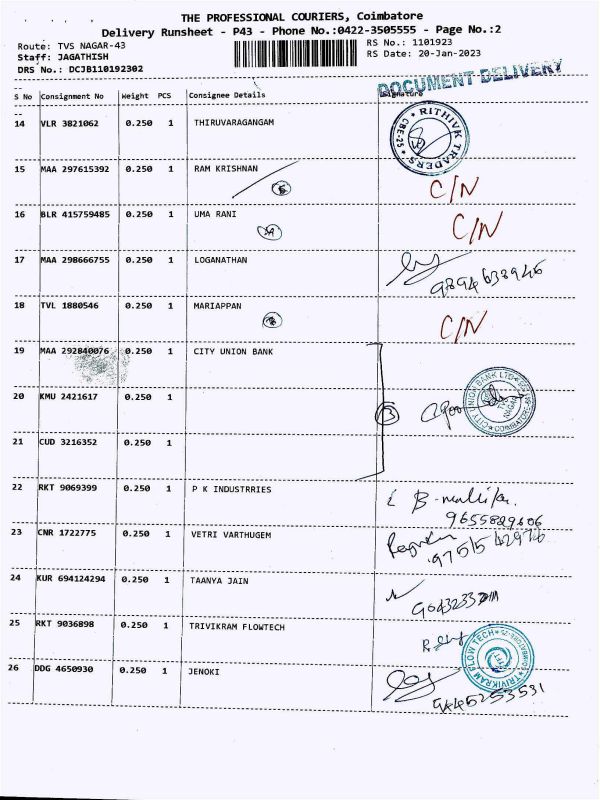 THE PROFESSIONAL COURIERS, Coimbatore
Delivery Runsheet - P43 - Phone No.:0422-3505555 - Page No.:2
Route: TVS NAGAR-43 RS No.: 1101923
Staff: JAGATHISH RS Date: 20-Jan-2023
DRS No.: DCJB110192302
DOCUMENT DELIVERY
S No Consignment No Weight PCS Consignee Details Signature
14 VLR 3821062 0.250 1 THIRUVARAGANGAM
RITHIVK TRADERS ★ CBE-25 ★
15 MAA 297615392 0.250 1 RAM KRISHNAN C/N
16 BLR 415759485 0.250 1 UMA RANI C/N
17 MAA 298666755 0.250 1 LOGANATHAN
9894638946
18 TVL 1880546 0.250 1 MARIAPPAN C/N
19 MAA 292840076 0.250 1 CITY UNION BANK
20 KMU 2421617 0.250 1 3
CITY UNION BANK LTD TVS NAGAR COIMBATORE
21 CUD 3216352 0.250 1
22 RKT 9069399 0.250 1 P K INDUSTRRIES
9655829606
23 CNR 1722775 0.250 1 VETRI VARTHUGEM
9751542976
24 KUR 694124294 0.250 1 TAANYA JAIN
25 RKT 9036898 0.250 1 TRIVIKRAM FLOWTECH
TRIVIKRAM FLOW TECH COIMBATORE-25
26 DDG 4650930 0.250 1 JENOKI
9445253531